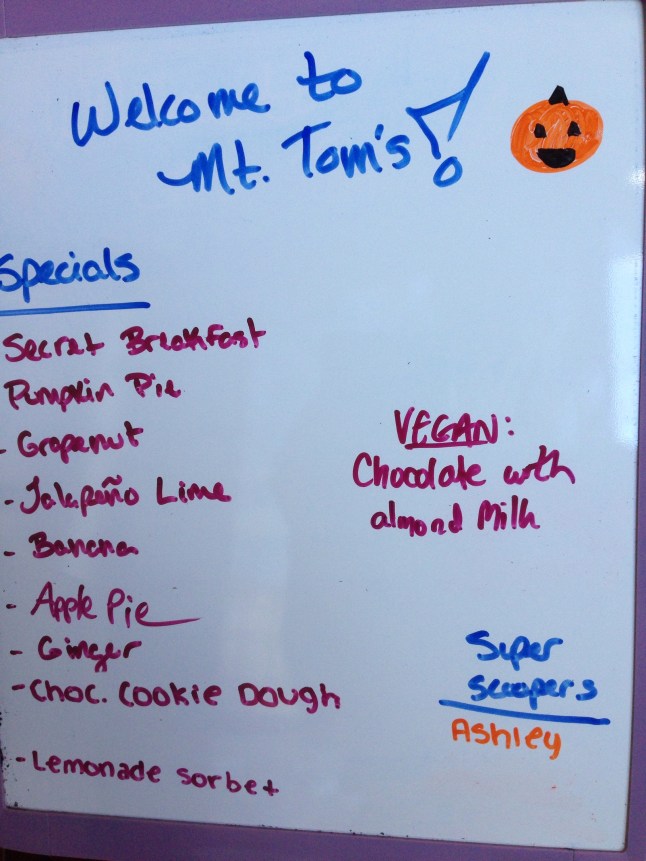 Welcome to
Mt. Tom's!
Specials
Secret Breakfast
Pumpkin Pie
- Grapenut
- Jalapeño Lime
- Banana
- Apple Pie
- Ginger
- Choc. Cookie Dough
- Lemonade sorbet
VEGAN:
Chocolate with
almond Milk
Super
Scoopers
Ashley